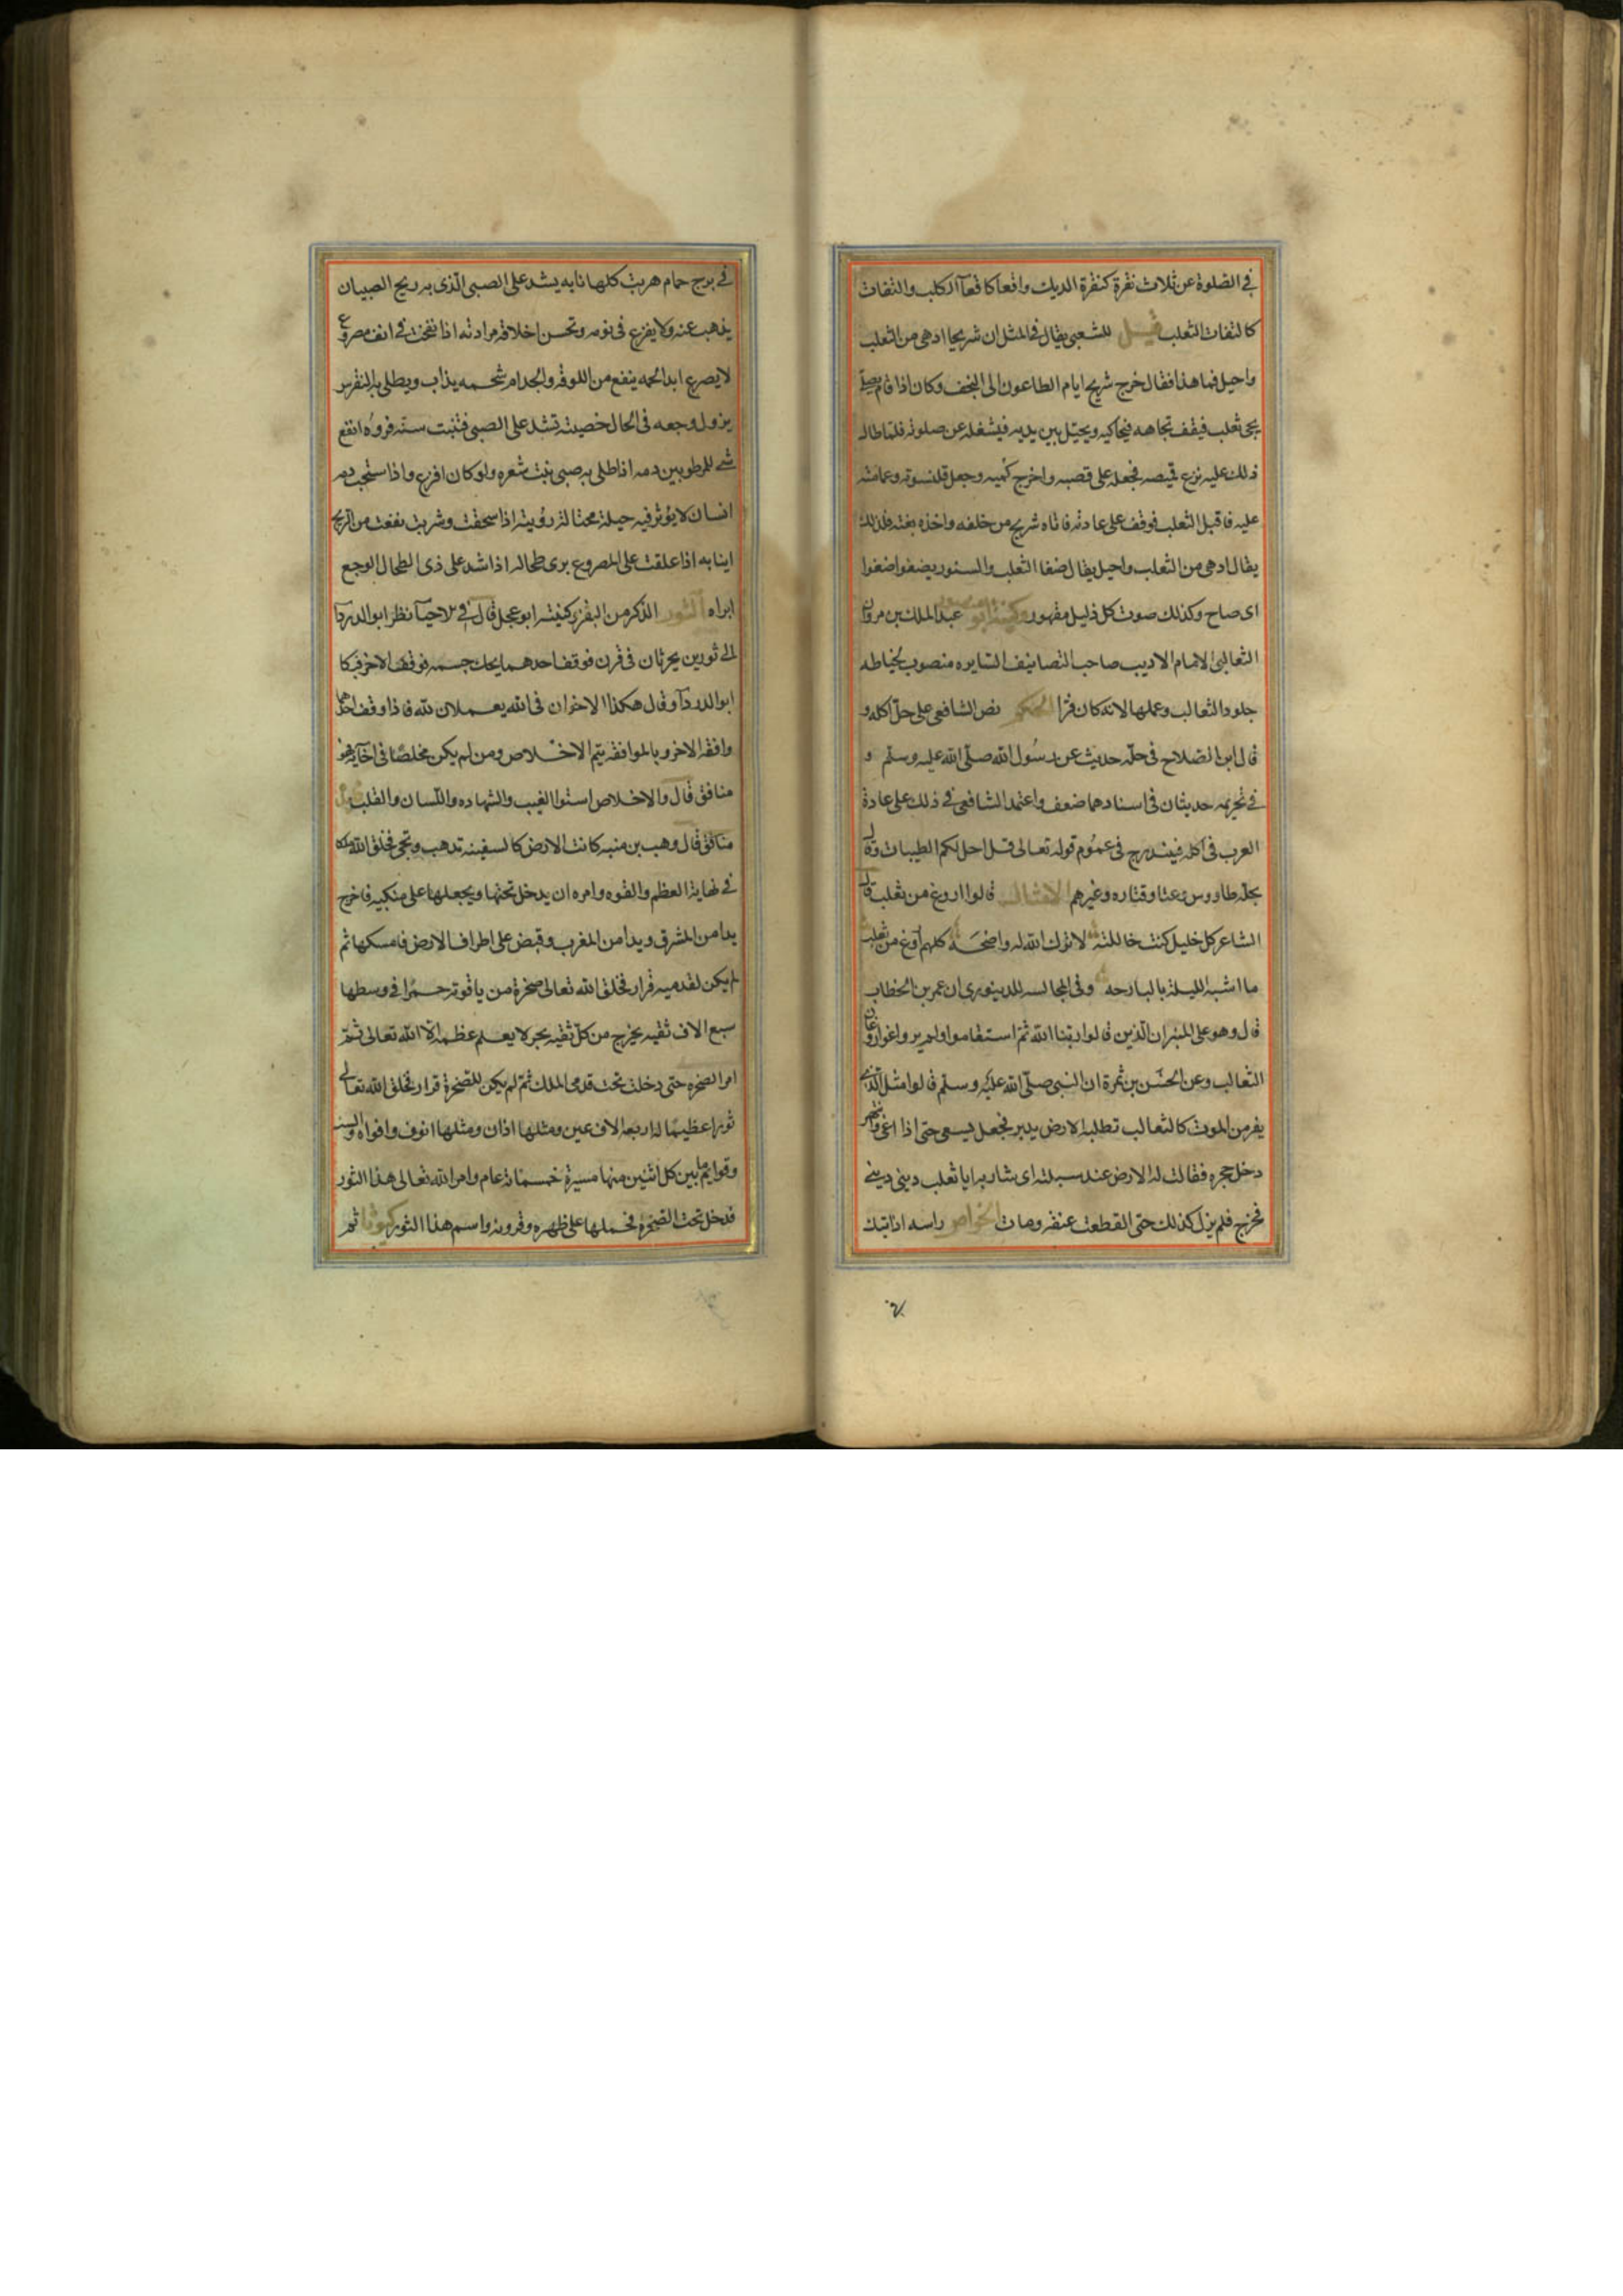 في الصلوة عن ثلاث نقرة كنقرة الديك واقعا كاقعآ الكلب والتفات
كالتفات الثعلب قيل للشعبي يقال في المثل ان شريحا ادهى من الثعلب
واحيل فما هذا فقال خرج شريح ايام الطاعون الى النجف وكان اذا قام يصلي
يجئ ثعلب فيقف تجاهه فيحاكيه ويحيل بين يديه فيشغله عن صلوته فلما طال
ذلك عليه نزع قميصه فجعله على قصبه واخرج كميه وجعل قلنسوته وعمامته
عليه فاقبل الثعلب فوقف على عادته فاتاه شريح من خلفه واخذه بغته فلذلك
يقال ادهى من الثعلب واحيل يقال ضغا الثعلب والسنور يضغوا ضغوا
اى صاح وكذلك صوت كل ذليل مقهور وكنية ابو منصور عبد الملك بن مروان
الثعالبى الامام الاديب صاحب التصانيف السايره منصوب لخياطه
جلود الثعالب وعملها لانه كان فرا الحكم نص الشافعى على حل اكله و
قال ابن الصلاح فى حله حديث عن رسول الله صلى الله عليه وسلم و
في تحريمه حديثان فى اسنادهما ضعف واعتمد الشافعى فى ذلك على عادة
العرب فى اكله فيندرج فى عموم قوله تعالى قل احل لكم الطيبات وقال
بحله طاووس وعتا وقتاره وغيرهم الامثال قالوا اروغ من ثعلب قال
الشاعر كل خليل كنت خاللته لا ترك الله له واضحه كلهم اروغ من ثعلب
ما اشبه الليلة بالبارحه وفى المجالسه للدينورى ان عمر بن الخطاب
قال وهو على المنبر ان الذين قالوا ربنا الله ثم استقاموا ولم يروغوا روغان
الثعالب وعن الحسن بن ثمرة ان النبى صلى الله عليه وسلم قالوا مثل الذى
يفر من الموت كالثعالب تطلبه الارض يدبر فجعل يسعى حتى اذا اعيى وانبهر
دخل جحره فقالت له الارض عند سبلته اى شاربه ايا ثعلب دينى دينى
فخرج فلم يزل كذلك حتى انقطعت عنقه ومات الخواص راسه اذا تيك
في برج حمام هربت كلها نابه يشد على الصبى الذى به ريح الصبيان
يذهب عنه ولا يفزع فى نومه وتحسن اخلاقه مرادته اذا نفخت فى انف مصروع
لا يصرع ابدا لحمه ينفع من اللوقه والجدام شحمه يذاب ويطلى به النقرس
يزول وجعه فى الحال خصيته تشد على الصبى فتنبت سنه فروه انفع
شى للمرطوبين دمه اذا طلى به صبى نبت شعره ولو كان اقرع واذا ستحب دمه
انسان لا يؤثر فيه حيلة محتال رؤيته اذا سحقت وشربت نفعت من الريح
اينابه اذا علقت على المصروع برى طحاله اذا شد على ذى الطحال الوجع
ابراه الثور الذكر من البقر وكنيته ابو عجل قال فى الاحيآ نظر ابو الدردآ
الى ثورين يحرثان فى قرن فوقف احدهما يحك جسمه فوقف الاخر فبكا
ابو الدردآ وقال هكذا الاخوان فى الله يعملان لله فاذا وقف احدهما
وافقه الاخر وبالموافقه يتم الاخلاص ومن لم يكن مخلصا فى اخآيه فهو
منافق قال والاخلاص استوا الغيب والشهاده واللسان والقلب
منافق قال وهب بن منبه كانت الارض كالسفينه تدهب وتجى فخلق الله ملكا
فى نهاية العظم والقوه وامره ان يدخل تحتها ويجعلها على منكبيه فاخرج
يدا من المشرق ويدا من المغرب وقبض على اطراف الارض فامسكها ثم
لم يكن لقدميه قرار فخلق الله تعالى صخرة من ياقوته حمرا فى وسطها
سبع الاف ثقبه يخرج من كل ثقبه بحر لا يعلم عظمه الا الله تعالى ثم
امر الصخره حتى دخلت تحت قدمى الملك ثم لم يكن للصخرة قرار فخلق الله تعالى
ثورا عظيما له اربعه الاف عين ومثلها اذان ومثلها انوف وافواه والسنه
وقوايم ما بين كل اثنين منها مسيرة خمسماية عام وامر الله تعالى هذا الثور
فدخل تحت الصخره فحملها على ظهره وقرونه واسم هذا الثور كيوثا ثم